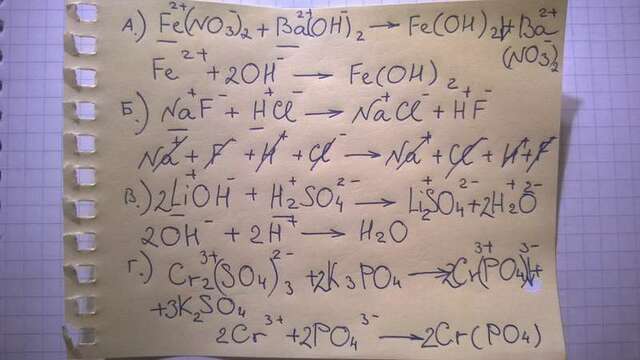 А.) Fe²⁺(NO₃⁻)₂ + Ba²⁺(OH⁻)₂ → Fe(OH)₂↓ + Ba²⁺
(NO₃⁻)₂
Fe²⁺ + 2OH⁻ → Fe(OH)₂
Б.) Na⁺F⁻ + H⁺Cl⁻ → Na⁺Cl⁻ + H⁺F⁻
Na⁺ + F⁻ + H⁺ + Cl⁻ → Na⁺ + Cl⁻ + H⁺ + F⁻
В.) 2Li⁺OH⁻ + H₂⁺SO₄²⁻ → Li₂⁺SO₄²⁻ + 2H₂⁺O²⁻
2OH⁻ + 2H⁺ → H₂O
Г.) Cr₂³⁺(SO₄)₃²⁻ + 2K₃PO₄ → 2Cr³⁺(PO₄)³⁻↓ +
+ 3K₂SO₄
2Cr³⁺ + 2PO₄³⁻ → 2Cr(PO₄)